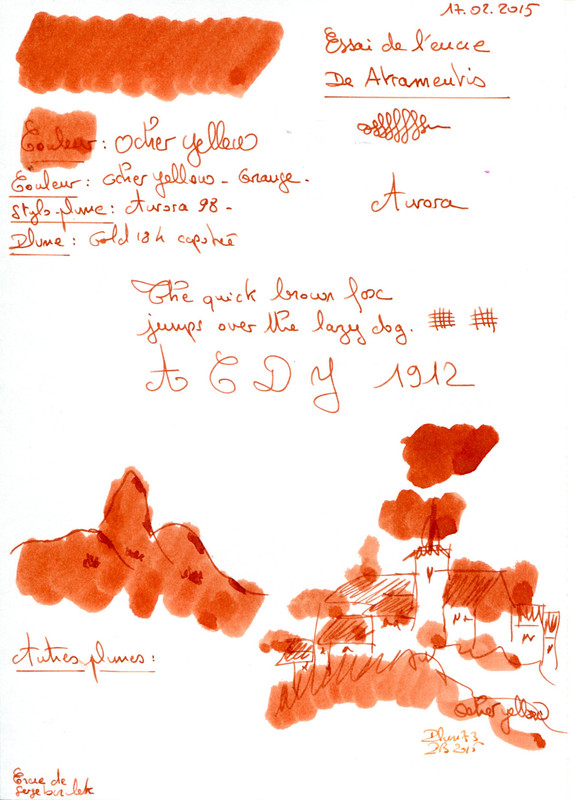 17.02.2015
Essai de l'encre
De Atramentis
Couleur: Ocher yellow
Couleur: Ocher yellow - Orange.
Stylo-plume: Aurora 98 -
Plume: Gold 18 k capotée
Aurora
The quick brown fox
jumps over the lazy dog.
A C D Y 1912
Autres plumes:
Ocher yellow
2015
de